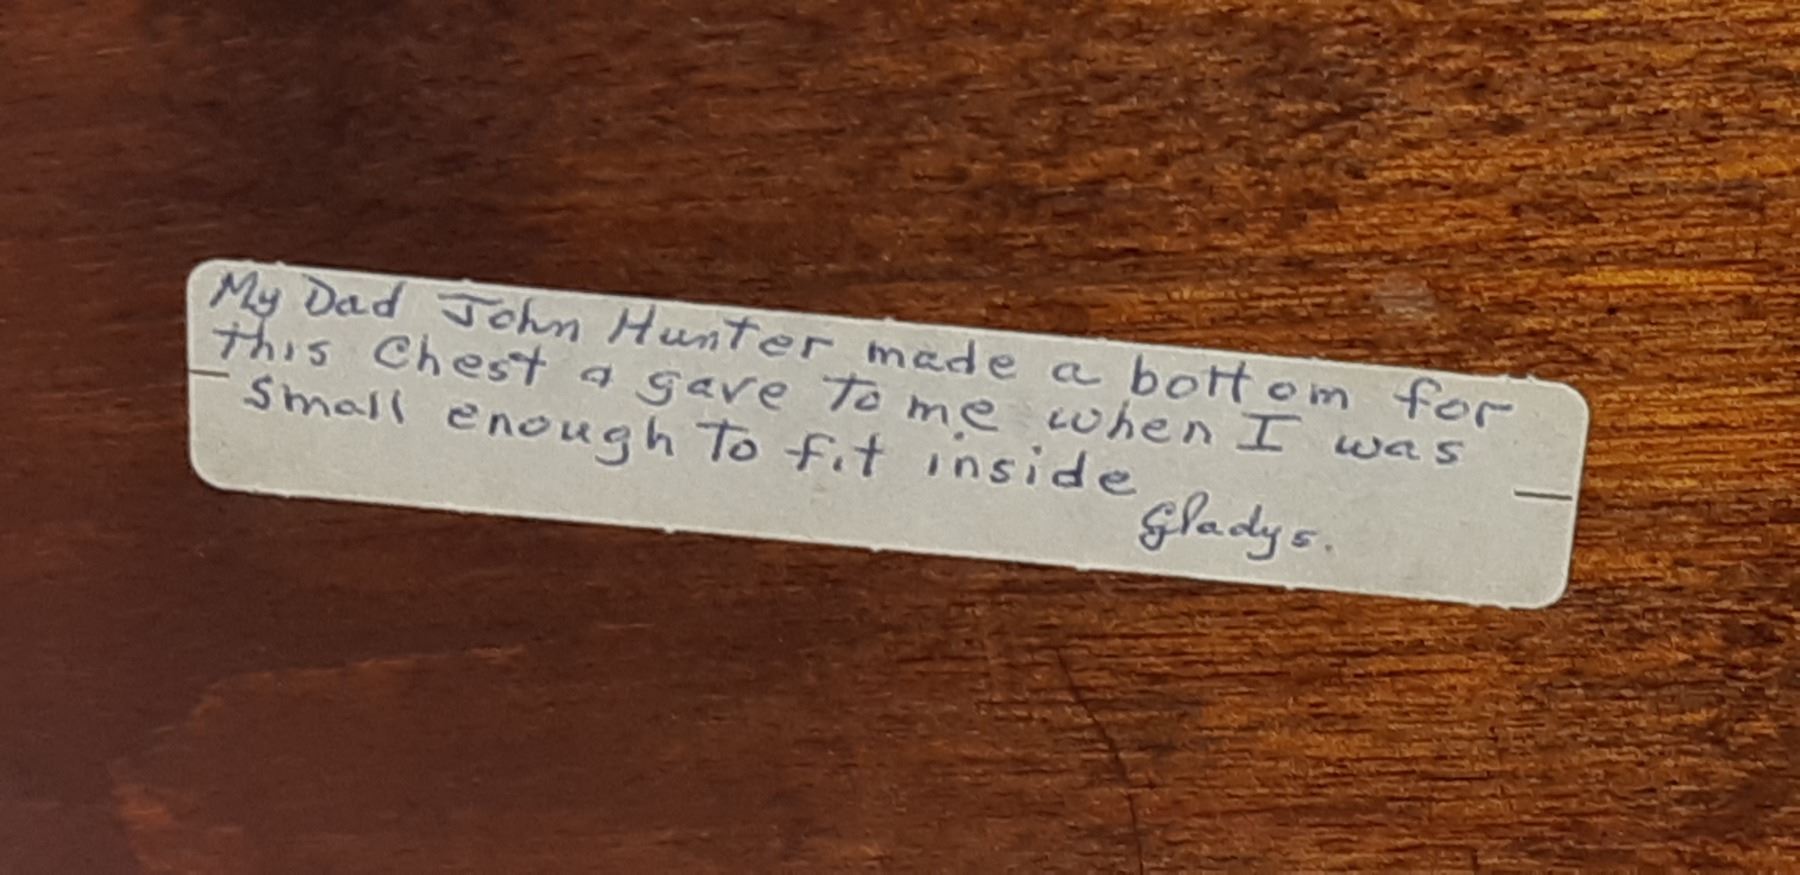 My Dad John Hunter made a bottom for
this Chest a gave to me when I was
small enough to fit inside
Gladys.